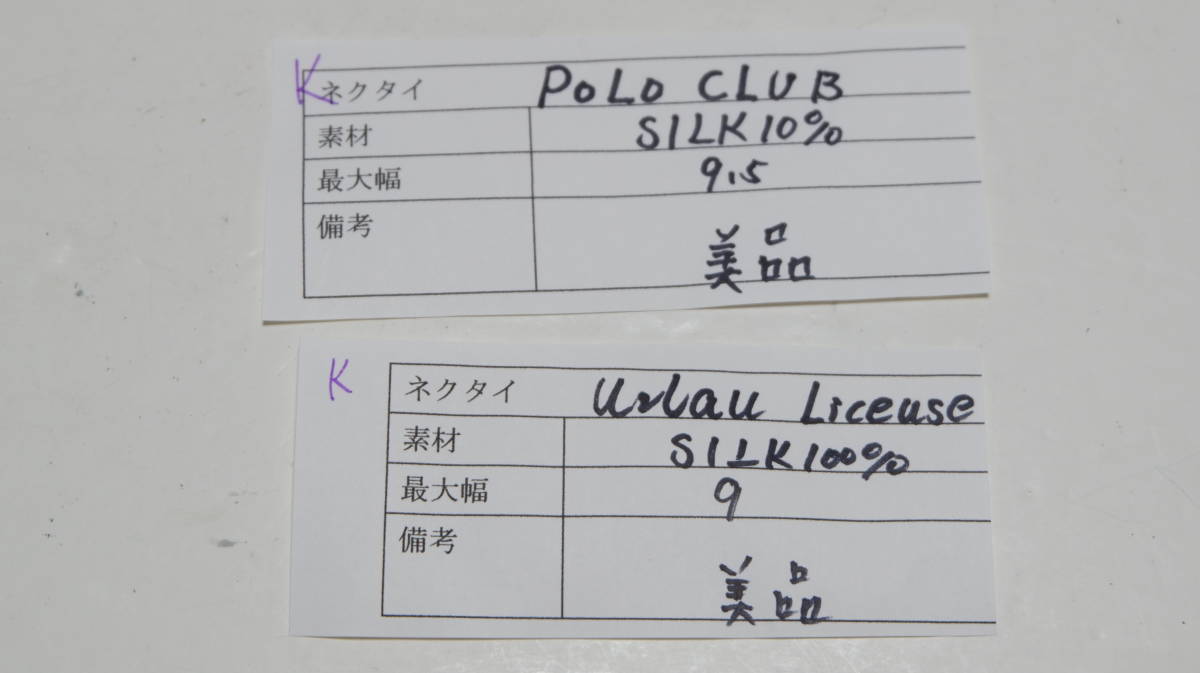 K
ネクタイ POLO CLUB
素材 SILK10%
最大幅 9.5
備考 美品
K
ネクタイ Urlau Liceuse
素材 SILK100%
最大幅 9
備考 美品